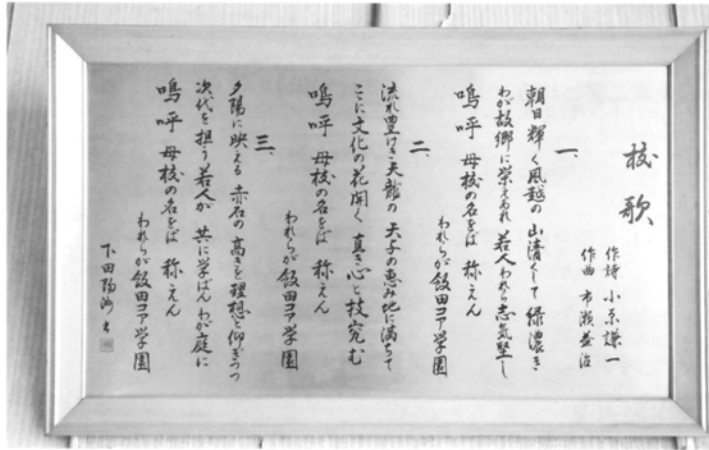 校歌
作詩 小原謙一
作曲 市瀬益治
一、
朝日輝く風越の 山清くして緑濃き
わが故郷に栄えあれ 若人われら志気堅し
嗚呼 母校の名をば 称えん
われらが飯田コア学園
二、
流れ豊けき天龍の 天子の恵み地に満ちて
ここに文化の花開く 真き心と技究む
嗚呼 母校の名をば 称えん
われらが飯田コア学園
三、
夕陽に映える 赤石の 高きを理想と仰ぎつつ
次代を担う若人が 共に学ばん わが庭に
嗚呼 母校の名をば 称えん
われらが飯田コア学園
下田陽洲 書